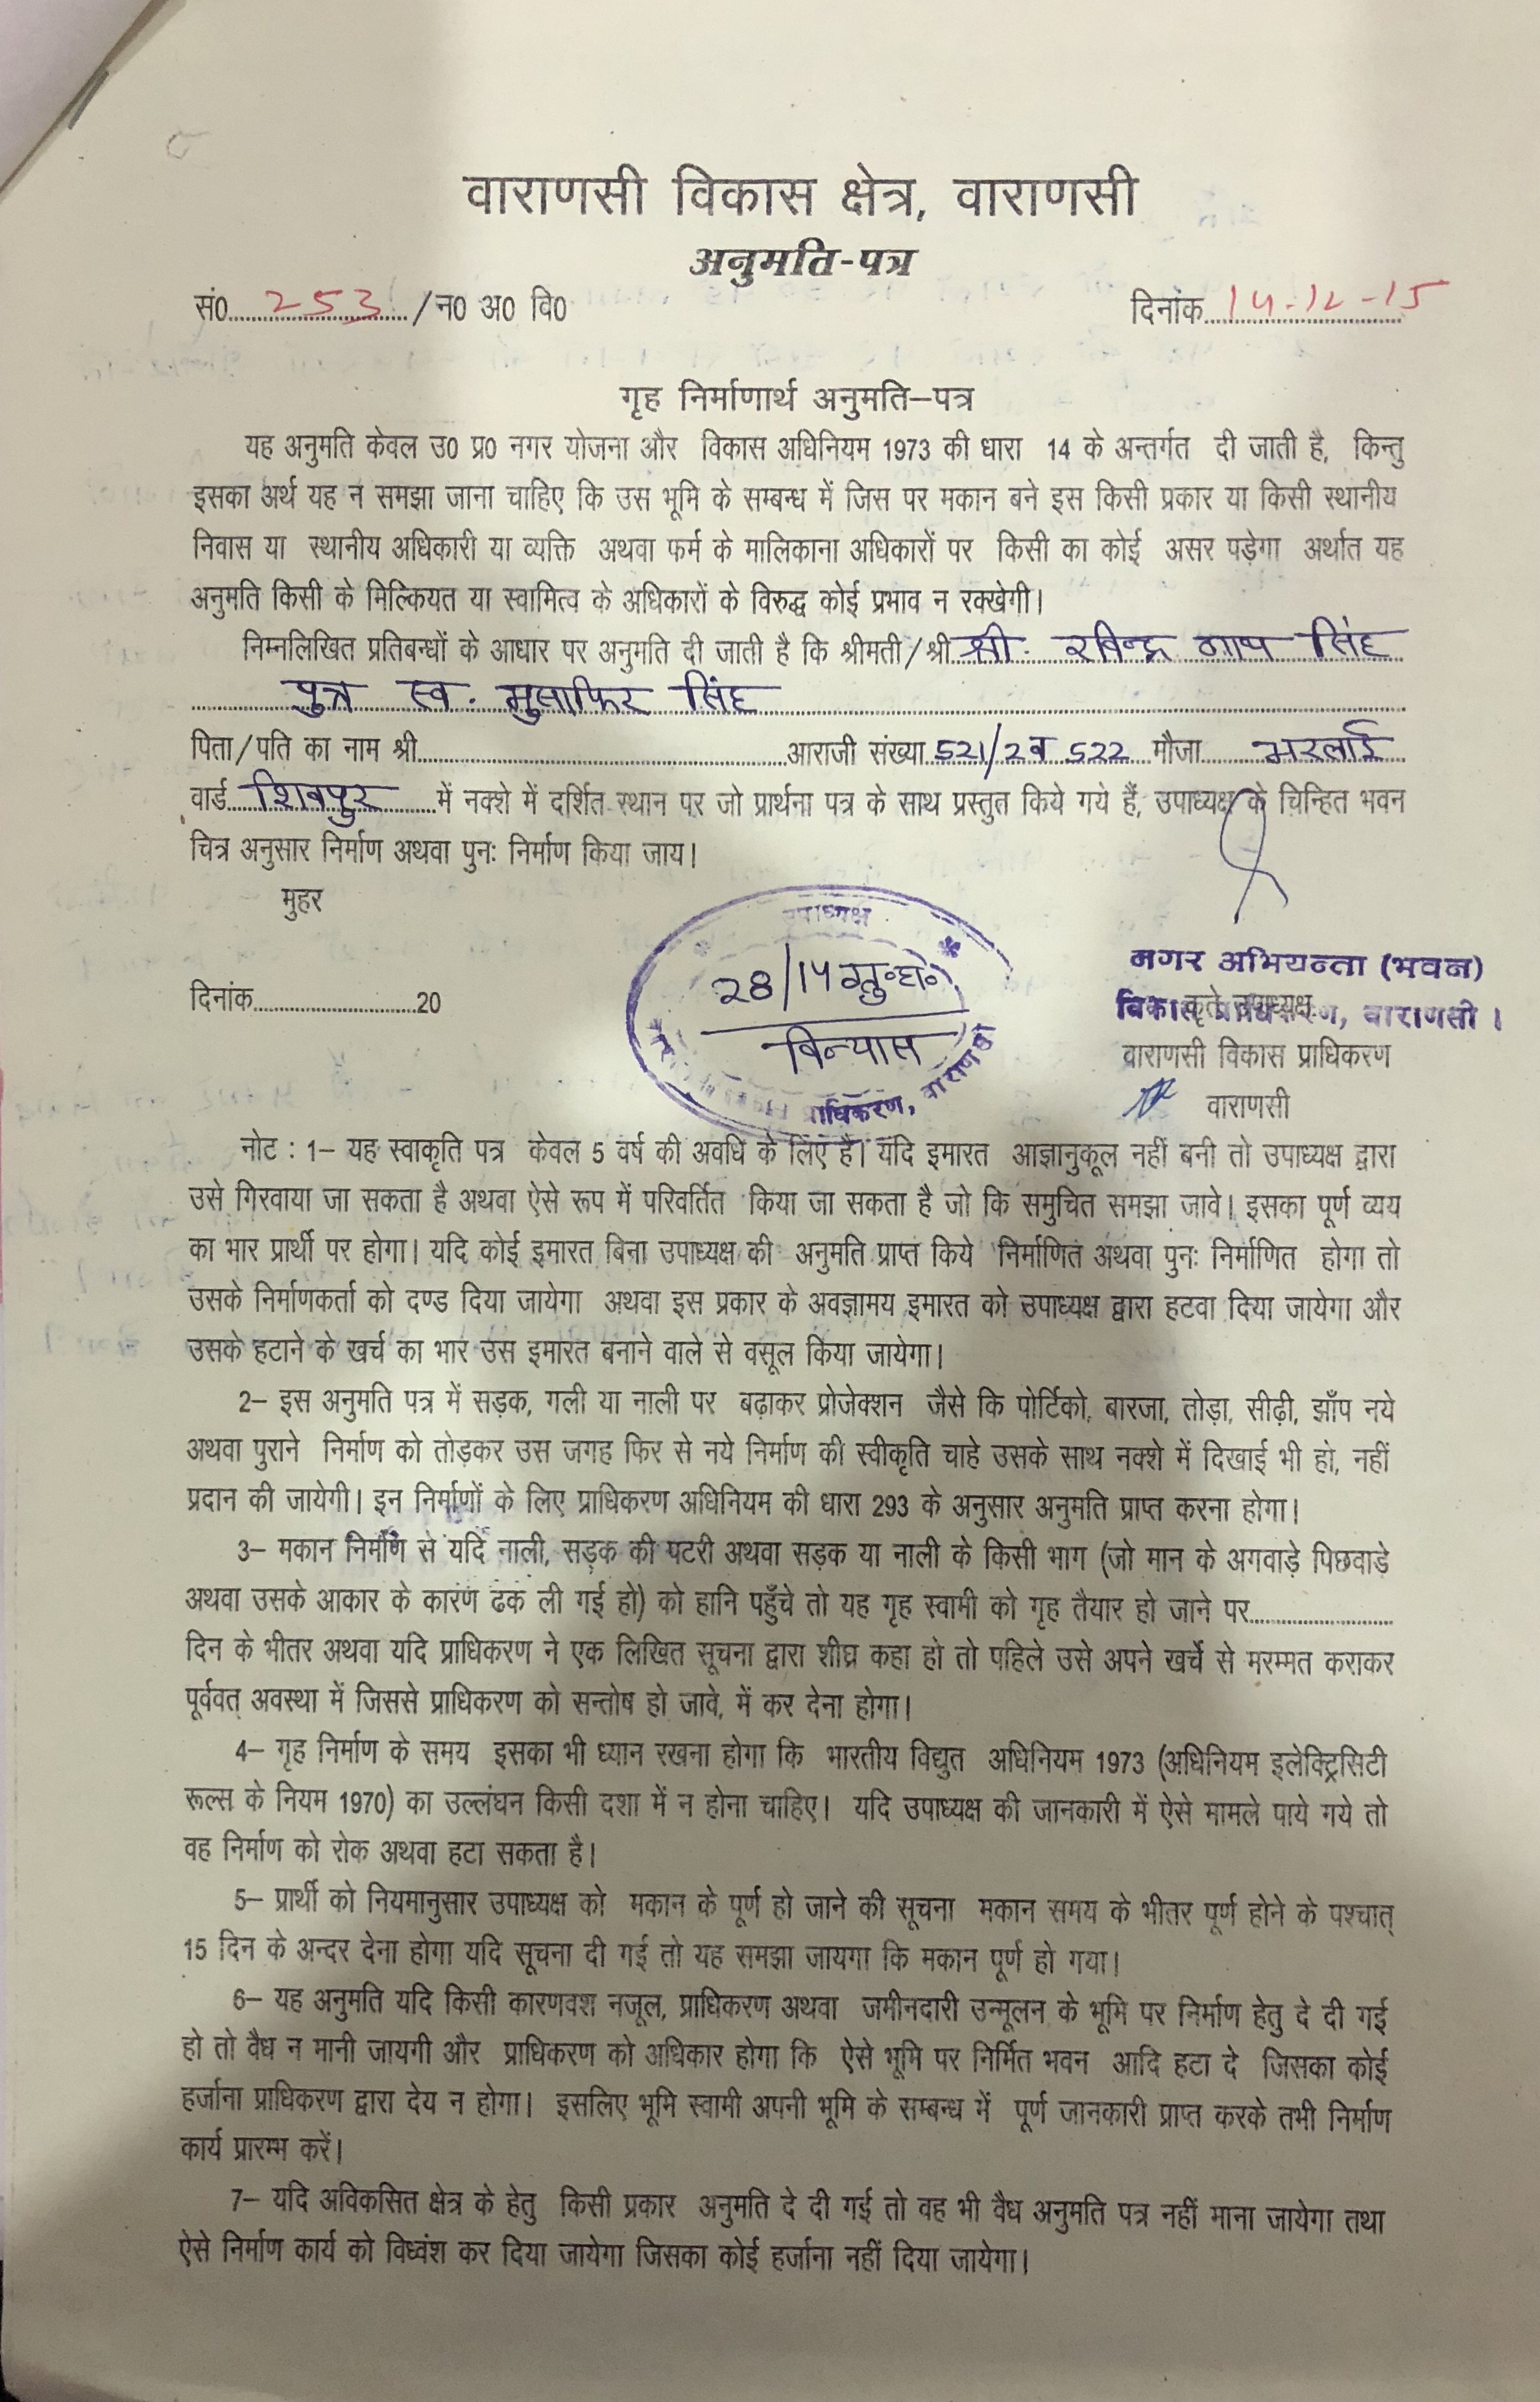 वाराणसी विकास क्षेत्र, वाराणसी
अनुमति-पत्र
सं0 253 /न0 अ0 वि0 दिनांक 14-12-15
गृह निर्माणार्थ अनुमति–पत्र
यह अनुमति केवल उ0 प्र0 नगर योजना और विकास अधिनियम 1973 की धारा 14 के अन्तर्गत दी जाती है, किन्तु
इसका अर्थ यह न समझा जाना चाहिए कि उस भूमि के सम्बन्ध में जिस पर मकान बने इस किसी प्रकार या किसी स्थानीय
निवास या स्थानीय अधिकारी या व्यक्ति अथवा फर्म के मालिकाना अधिकारों पर किसी का कोई असर पड़ेगा अर्थात यह
अनुमति किसी के मिल्कियत या स्वामित्व के अधिकारों के विरुद्ध कोई प्रभाव न रक्खेगी।
निम्नलिखित प्रतिबन्धों के आधार पर अनुमति दी जाती है कि श्रीमती/श्री श्री. रविन्द्र नाथ सिंह
पुत्र स्व. मुसाफिर सिंह
पिता/पति का नाम श्री..........आराजी संख्या 521/2 व 522 मौजा भरलाई
वार्ड शिवपुर में नक्शे में दर्शित स्थान पर जो प्रार्थना पत्र के साथ प्रस्तुत किये गये हैं, उपाध्यक्ष के चिन्हित भवन
चित्र अनुसार निर्माण अथवा पुनः निर्माण किया जाय।
मुहर
उपाध्यक्ष
28/14
विन्यास
प्राधिकरण, वाराणसी
नगर अभियन्ता (भवन)
दिनांक..........20
कृते उपाध्यक्ष
विकास प्राधिकरण, वाराणसी ।
वाराणसी विकास प्राधिकरण
वाराणसी
नोट : 1– यह स्वाकृति पत्र केवल 5 वर्ष की अवधि के लिए है। यदि इमारत आज्ञानुकूल नहीं बनी तो उपाध्यक्ष द्वारा
उसे गिरवाया जा सकता है अथवा ऐसे रूप में परिवर्तित किया जा सकता है जो कि समुचित समझा जावे। इसका पूर्ण व्यय
का भार प्रार्थी पर होगा। यदि कोई इमारत बिना उपाध्यक्ष की अनुमति प्राप्त किये निर्माणित अथवा पुनः निर्माणित होगा तो
उसके निर्माणकर्ता को दण्ड दिया जायेगा अथवा इस प्रकार के अवज्ञामय इमारत को उपाध्यक्ष द्वारा हटवा दिया जायेगा और
उसके हटाने के खर्च का भार उस इमारत बनाने वाले से वसूल किया जायेगा।
2– इस अनुमति पत्र में सड़क, गली या नाली पर बढ़ाकर प्रोजेक्शन जैसे कि पोर्टिको, बारजा, तोड़ा, सीढ़ी, झाँप नये
अथवा पुराने निर्माण को तोड़कर उस जगह फिर से नये निर्माण की स्वीकृति चाहे उसके साथ नक्शे में दिखाई भी हो, नहीं
प्रदान की जायेगी। इन निर्माणों के लिए प्राधिकरण अधिनियम की धारा 293 के अनुसार अनुमति प्राप्त करना होगा।
3– मकान निर्माण से यदि नाली, सड़क की पटरी अथवा सड़क या नाली के किसी भाग (जो मान के अगवाड़े पिछवाड़े
अथवा उसके आकार के कारण ढक ली गई हो) को हानि पहुँचे तो यह गृह स्वामी को गृह तैयार हो जाने पर..........
दिन के भीतर अथवा यदि प्राधिकरण ने एक लिखित सूचना द्वारा शीघ्र कहा हो तो पहिले उसे अपने खर्चे से मरम्मत कराकर
पूर्ववत् अवस्था में जिससे प्राधिकरण को सन्तोष हो जावे, में कर देना होगा।
4– गृह निर्माण के समय इसका भी ध्यान रखना होगा कि भारतीय विद्युत अधिनियम 1973 (अधिनियम इलेक्ट्रिसिटी
रूल्स के नियम 1970) का उल्लंघन किसी दशा में न होना चाहिए। यदि उपाध्यक्ष की जानकारी में ऐसे मामले पाये गये तो
वह निर्माण को रोक अथवा हटा सकता है।
5– प्रार्थी को नियमानुसार उपाध्यक्ष को मकान के पूर्ण हो जाने की सूचना मकान समय के भीतर पूर्ण होने के पश्चात्
15 दिन के अन्दर देना होगा यदि सूचना दी गई तो यह समझा जायगा कि मकान पूर्ण हो गया।
6– यह अनुमति यदि किसी कारणवश नजूल, प्राधिकरण अथवा जमीनदारी उन्मूलन के भूमि पर निर्माण हेतु दे दी गई
हो तो वैध न मानी जायगी और प्राधिकरण को अधिकार होगा कि ऐसे भूमि पर निर्मित भवन आदि हटा दे जिसका कोई
हर्जाना प्राधिकरण द्वारा देय न होगा। इसलिए भूमि स्वामी अपनी भूमि के सम्बन्ध में पूर्ण जानकारी प्राप्त करके तभी निर्माण
कार्य प्रारम्भ करें।
7– यदि अविकसित क्षेत्र के हेतु किसी प्रकार अनुमति दे दी गई तो वह भी वैध अनुमति पत्र नहीं माना जायेगा तथा
ऐसे निर्माण कार्य को विध्वंश कर दिया जायेगा जिसका कोई हर्जाना नहीं दिया जायेगा।